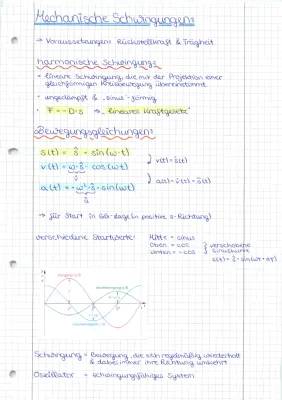 Mechanische Schwingungen:
→ Voraussetzungen: Rückstellkraft & Trägheit
harmonische Schwingung:
→ lineare Schwingung, die mit der Projektion einer
gleichförmigen Kreisbewegung übereinstimmt
→ ungedämpft & "sinus"-förmig
→ F = -D·s → "lineares Kraftgesetz"
Bewegungsgleichungen:
s(t) = ŝ · sin(ω·t)
v(t) = ω·ŝ · cos(ω·t)
v(t) = ṡ(t)
a(t) = -ω²·ŝ · sin(ω·t)
a(t) = v̇(t) = s̈(t)
→ für Start in GG-Lage (in positive s-Richtung)
verschiedene Startwerte:
Mitte = sinus
Oben = cos
Unten = -cos
verschobene
Sinuskurve
s(t) = ŝ · sin(ωt + Δφ)
Schwingung = Bewegung, die sich regelmäßig wiederholt
& dabei immer ihre Richtung umkehrt
Oszillator = schwingungsfähiges System